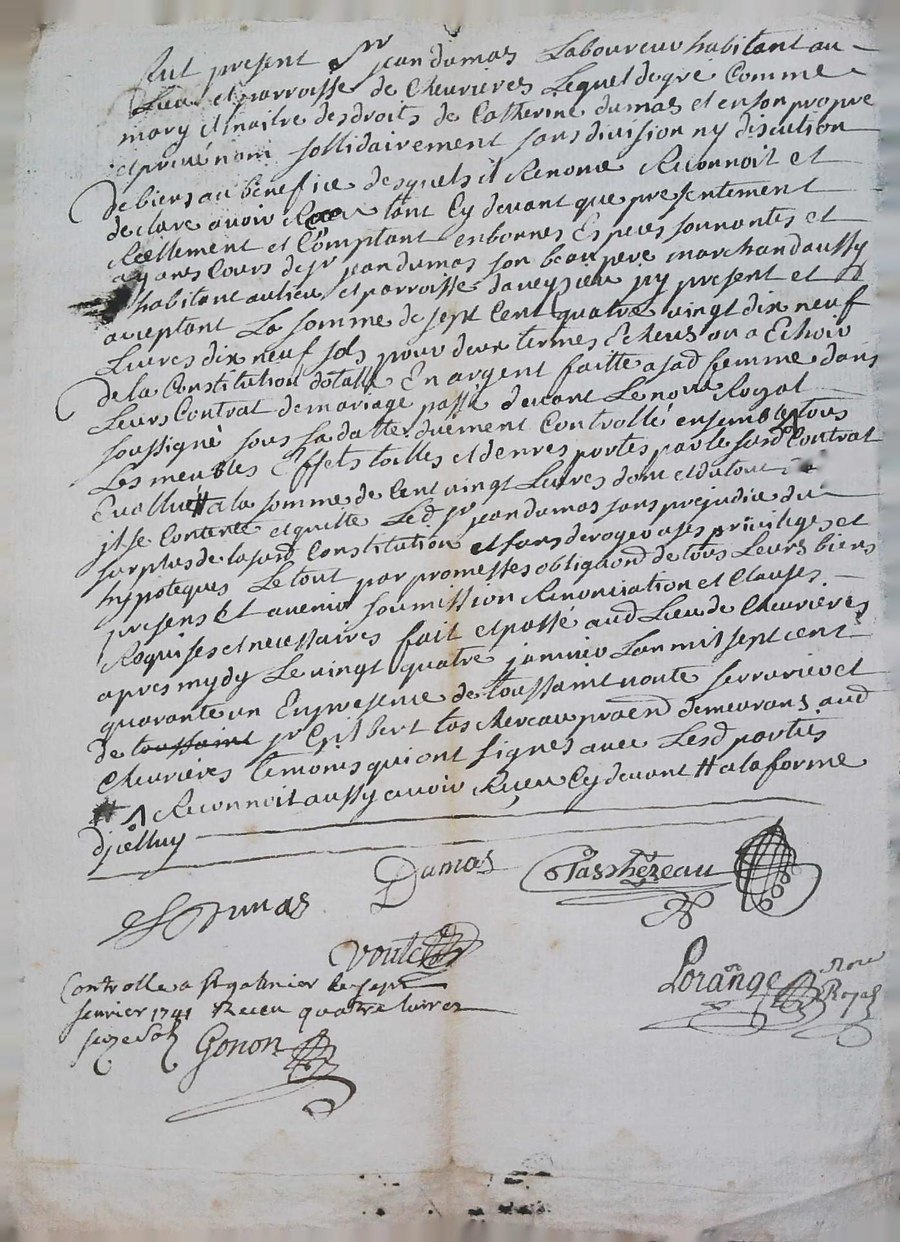 fut present Sr jean dumas Laboureur habitant au
Lieu et parroisse de Chevrieres Lequel de gré Comme
mary et maitre des droits de Catherine dumas et en son propre
et privé nom sollidairement sans division ny discution
de biens au benefice desquels il Renonce Reconnoit et
declare avoir Receu tant Cy devant que presentement
Reellement et Comptant en bonnes Especes sonnantes et
ayans Cours de Sr jean dumas son beau pere marchand aussy
habitant au lieu et parroisse daveysieu jcy present et
acceptant La somme de sept Cent quatre vingt dix neuf
Livres dix neuf sols pour deux termes Echeus ou a Echoir
de la Constitution dotalle En argent faitte a sad femme dans
Leurs Contrat de mariage passé devant Le nore Royal
soussigné sous sa datte duement Controllé ensemble tous
Les meubles Effets toilles et denrés portés par le susd Contrat
Evallués a la somme de Cent vingt Livres dont et du tout
jl se Contente et quitte Led Sr jean dumas sans prejudice du
surplus de la susd Constitution et sans deroger a ses privileges et
hypoteques Le tout par promesses obligaond de tous Leurs biens
presens et avenir soumission Renonciation et Clauses
Requises et necessaires fait et passé aud Lieu de Chevrieres
apres mydy Le vingt quatre janvier Lan mil sept cent
quarante un En presence de toussaint voute serrurier et
de toussaint Sr Gilbert tachereau praend demeurans aud
Chevrieres temoins qui ont signés avec Lesd parties
Reconnoit aussy avoir Receu Cy devant # a la forme
djcelluy
Dumas
Dumas
Voute
Lorange Nore
Royal
Controlle a St galmier le sept
fevrier 1741 Receu quatre livres
seze sols Gonon